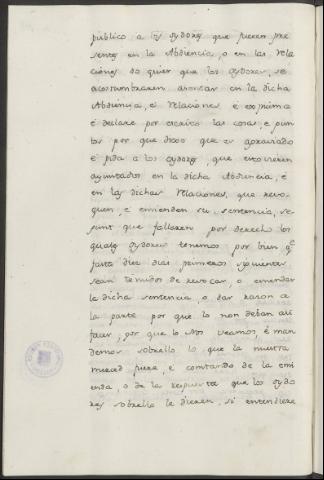 publico a los oydores que fueren pre
sentes en la Abdiencia, o en las rela
ciones do quier que los oydores, se
acostumbraren asentar en la dicha
Abdiencia, e relaciones e exprima
e declare por escrito las cosas, e pun
tos por que dixo que es agraviado
e pida a los oydores, que estovieren
ayuntados en la dicha Abdiencia, e
en las dichas relaciones, que revo
quen, e emienden su sentencia, se
gunt que fallaren por derecho los
quales oydores tenemos por bien q.e
fasta diez dias primeros siguientes
sean tenudos de revocar, o emendar
la dicha sentencia, o dar razon a
la parte por que lo non deban asi
facer, por que lo Nos veamos, e man
demos sobrello lo que la nuestra
merced fuere, e contando de la emi
enda, o de la respuesta que los oydo
res sobrello le dieren, si entendiere